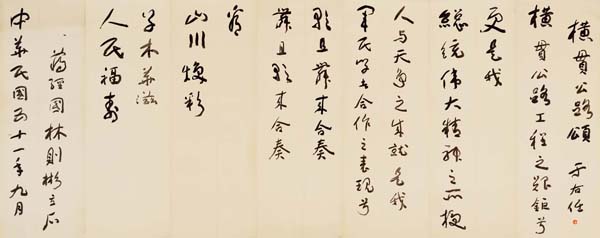 橫貫公路頌 于右任
橫貫公路工程之艱鉅兮
更是我
總統偉大精神之所
人与天爭之成就是我
軍民學合作之表現兮
歌且舞來合奏
舞且歌來合奏
山川煥彩
草木華滋
人民福壽
蔣經國林則彬立石
中華民國五十一年九月